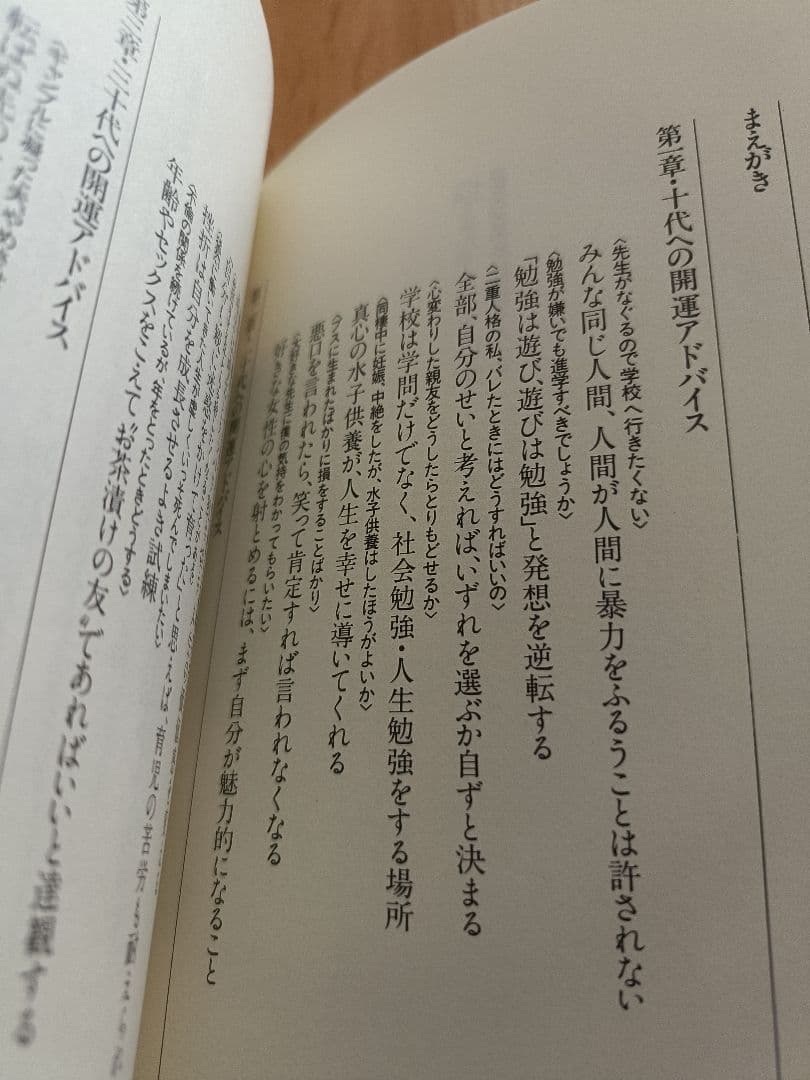 まえがき
第一章・十代への開運アドバイス
〈先生がなぐるので学校へ行きたくない〉
みんな同じ人間、人間が人間に暴力をふるうことは許されない
〈勉強が嫌いでも進学すべきでしょうか〉
「勉強は遊び、遊びは勉強」と発想を逆転する
〈二重人格の私、バレたときにはどうすればいいの〉
全部、自分のせいと考えれば、いずれを選ぶか自ずと決まる
〈心変わりした親友をどうしたらとりもどせるか〉
学校は学問だけでなく、社会勉強・人生勉強をする場所
〈同棲中に妊娠、中絶をしたが、水子供養はしたほうがよいか〉
真心の水子供養が、人生を幸せに導いてくれる
〈ブスに生まれたばかりに損をすることばかり〉
悪口を言われたら、笑って肯定すれば言われなくなる
〈大好きな先生に僕の気持をわかってもらいたい〉
好きな女性の心を射とめるには、まず自分が魅力的になること
と思えば、育児の苦労も
挫折は自分を成長させるよき試練
〈不倫の関係を続けているが、年をとったときどうする〉
年齢やセックスをこえて“お茶漬けの友”であればいいと達観する
第三章・三十代への開運アドバイス